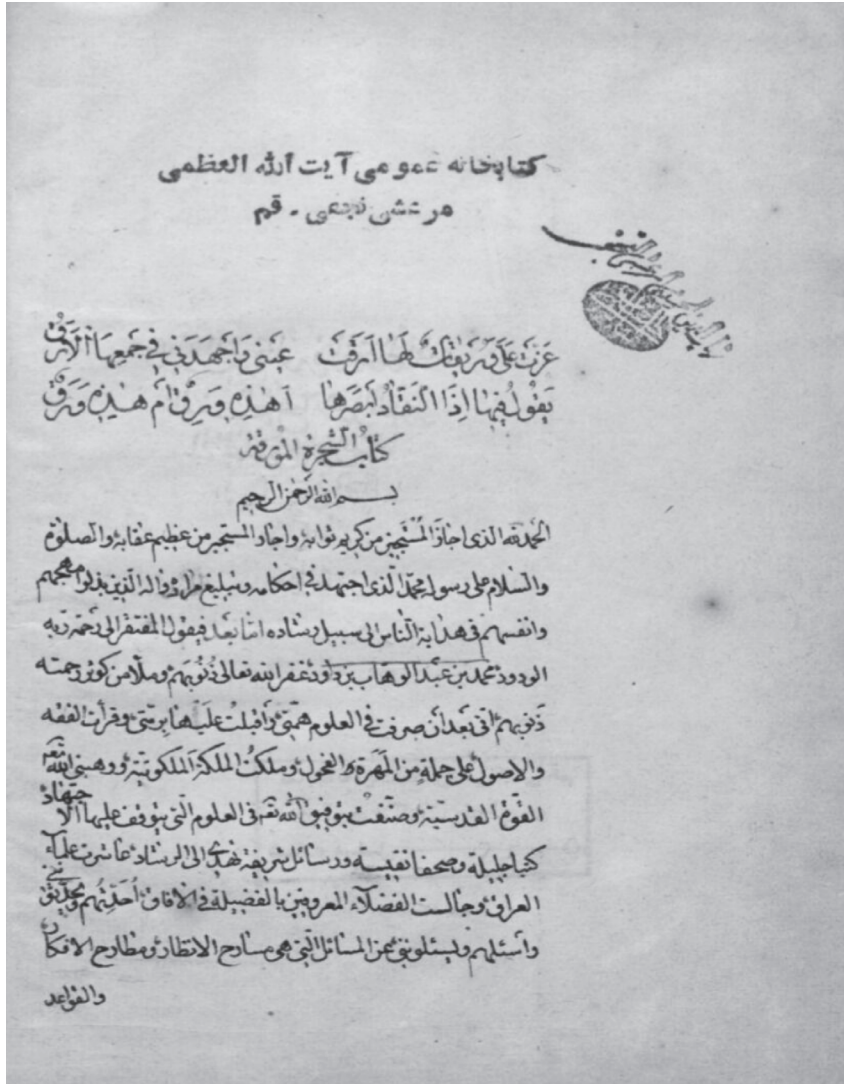 كتابخانه عمومى آيت الله العظمى
مرعشى نجفى - قم
عزت على وريقات لها ارقت عينى واجهدنى فى جمعها الارق
يقول فيها اذا النقاد ابصرها اهذه ورق ام هذه ورق
كتاب الشجرة المورقة
بسم الله الرحمن الرحيم
الحمد لله الذى اجاز المستجيز من كريم ثوابه واجار المستجير من عظيم عقابه والصلوة
والسلام على رسوله محمد الذى اجتهد فى احكامه وتبليغ مراده واله الذين بذلوا مهجهم
وانفسهم فى هداية الناس الى سبيل رشاده اما بعد فيقول المفتقر الى رحمة ربه
الودود محمد بن عبد الوهاب بن داود غفر الله تعالى ذنوبهم وملأ من كوثر رحمته
ذنوبهم انى بعد ان صرفت فى العلوم همتى واقبلت عليها برمتى وقرأت الفقه
والاصول على جملة من المهرة الفحول وملكت الملكة الملكوتية ووهبنى الله تعه
القوة القدسية وصنفت بتوفيق الله تعه فى العلوم التى يتوقف عليها الاجتهاد
كتبا جليلة وصحفا نفيسة ورسائل شريفة تهدى الى الرشاد عاشرت علماء
العراق وجالست الفضلاء المعروفين بالفضيلة فى الافاق أحدثهم ويحدثونى
واسئلهم ويسئلونى عن المسائل التى هى مسارح الانظار ومطارح الافكار
والقواعد